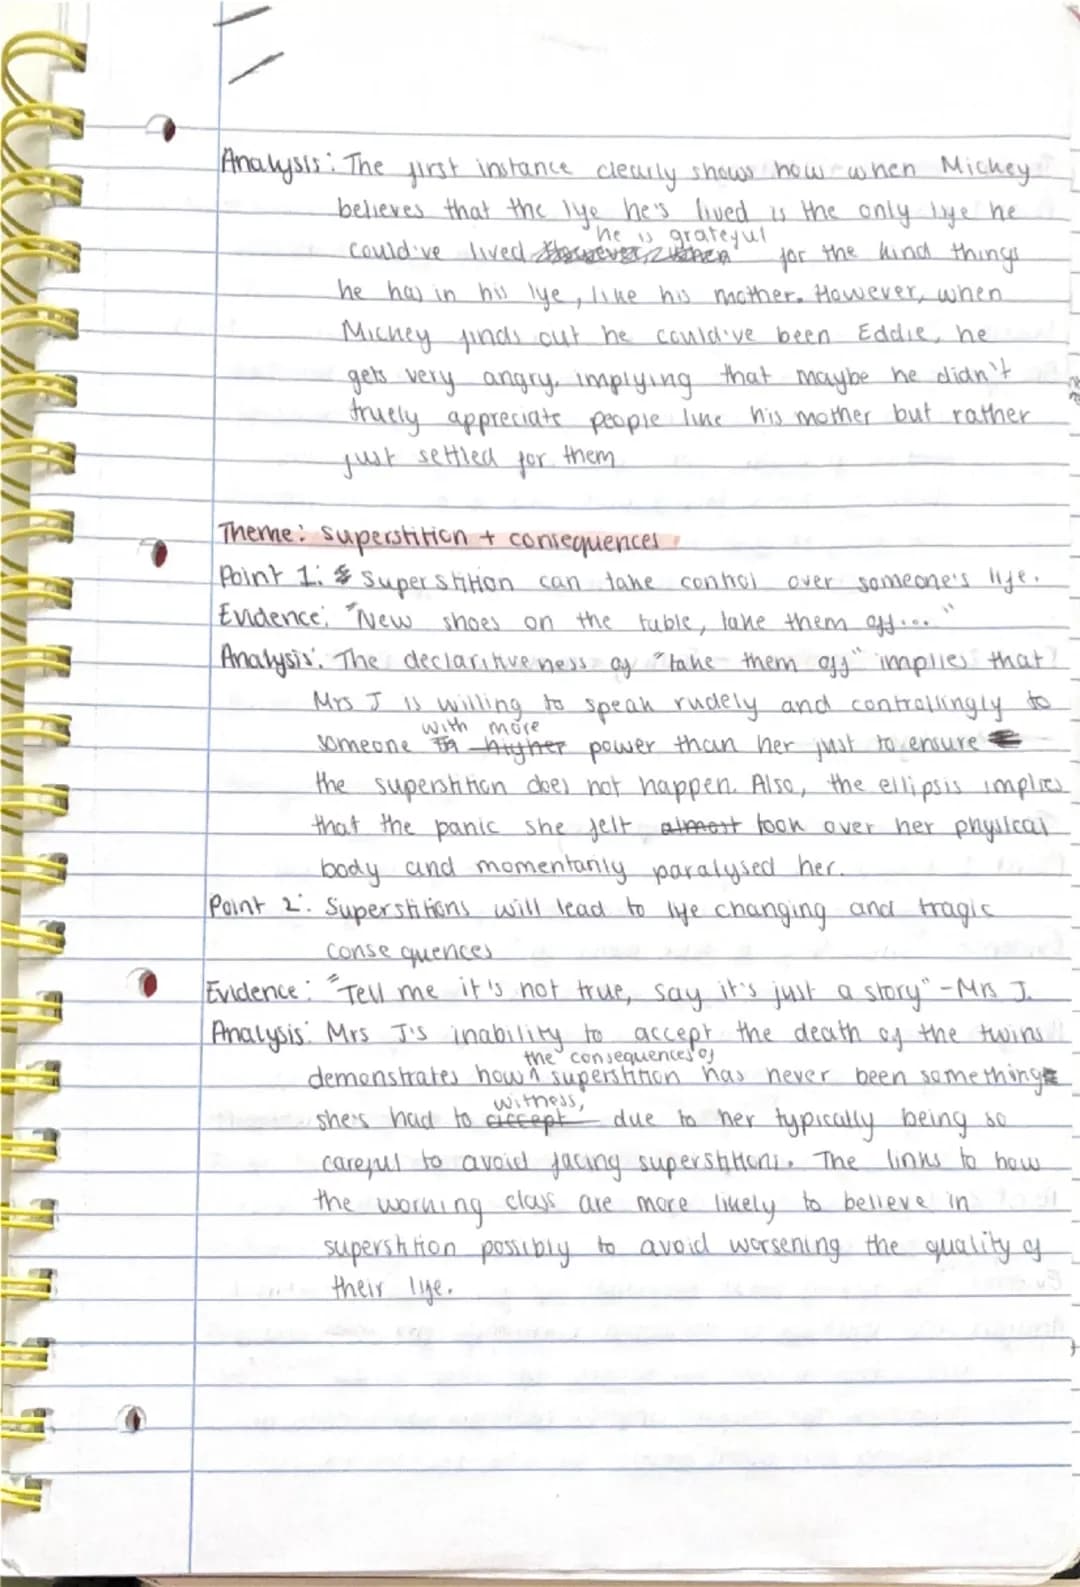 Analysis: The first instance clearly shows how when Mickey
believes that the life he's lived is the only life he
could've lived he is grateful for the kind things
he has in his life, like his mother. However, when
Mickey finds out he could've been Eddie, he
gets very angry, implying that maybe he didn't
truely appreciate people like his mother but rather
just settled for them
Theme: superstition + consequences
Point 1: Superstition can take control over someone's life.
Evidence: "New shoes on the table, take them off..."
Analysis: The declaritiveness of "take them off" implies that
Mrs J is willing to speak rudely and controllingly to
someone with more power than her just to ensure
the superstition does not happen. Also, the ellipsis implies
that the panic she felt almost took over her physical
body and momentarily paralysed her.
Point 2: Superstitions will lead to life changing and tragic
consequences
Evidence: "Tell me it's not true, say it's just a story" - Mrs J.
Analysis: Mrs J's inability to accept the death of the twins
demonstrates how the consequences of superstition has never been something
she's had to accept witness, due to her typically being so
careful to avoid facing superstitions. The links to how
the working class are more likely to believe in
superstition possibly to avoid worsening the quality of
their life.